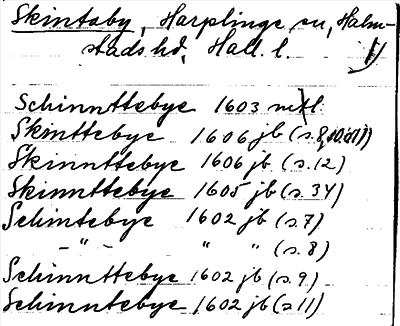 Skintaby, Harplinge sn, Halm-
stads hd, Hall. l.
Schinnttebye 1603 mtl.
Skinttebye 1606 jb (s. 8,
Skinnttebye 1606 jb (s. 12)
Skinnttebye 1605 jb (s. 34)
Schintebye 1602 jb (s. 7)
–"– " " (s. 8)
Schinnttebye 1602 jb (s. 9)
Schinntebye 1602 jb (s 11)